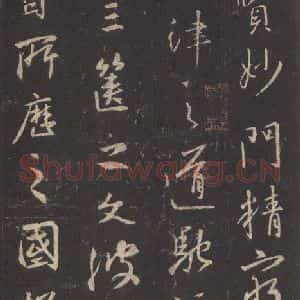 賾妙門精窮
律之道馳
三篋之文波
自所歷之國
Shufawang.CN